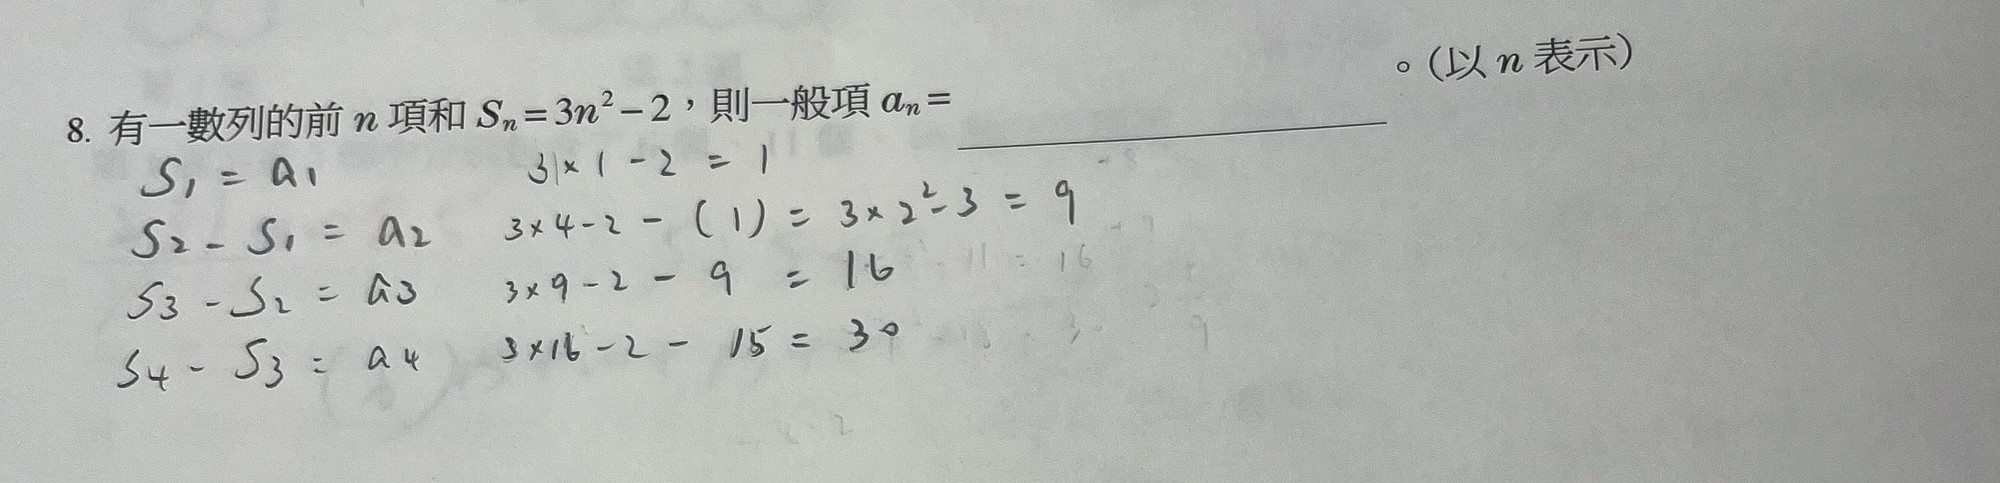 8. 有一數列的前 n 項和 Sₙ=3n²−2，則一般項 aₙ=＿＿＿＿＿＿。(以 n 表示)
S₁ = a₁ 3×1−2 = 1
S₂ − S₁ = a₂ 3×4−2 − (1) = 3×2²−3 = 9
S₃ − S₂ = a₃ 3×9−2 − 9 = 16
S₄ − S₃ = a₄ 3×16−2 − 15 = 30